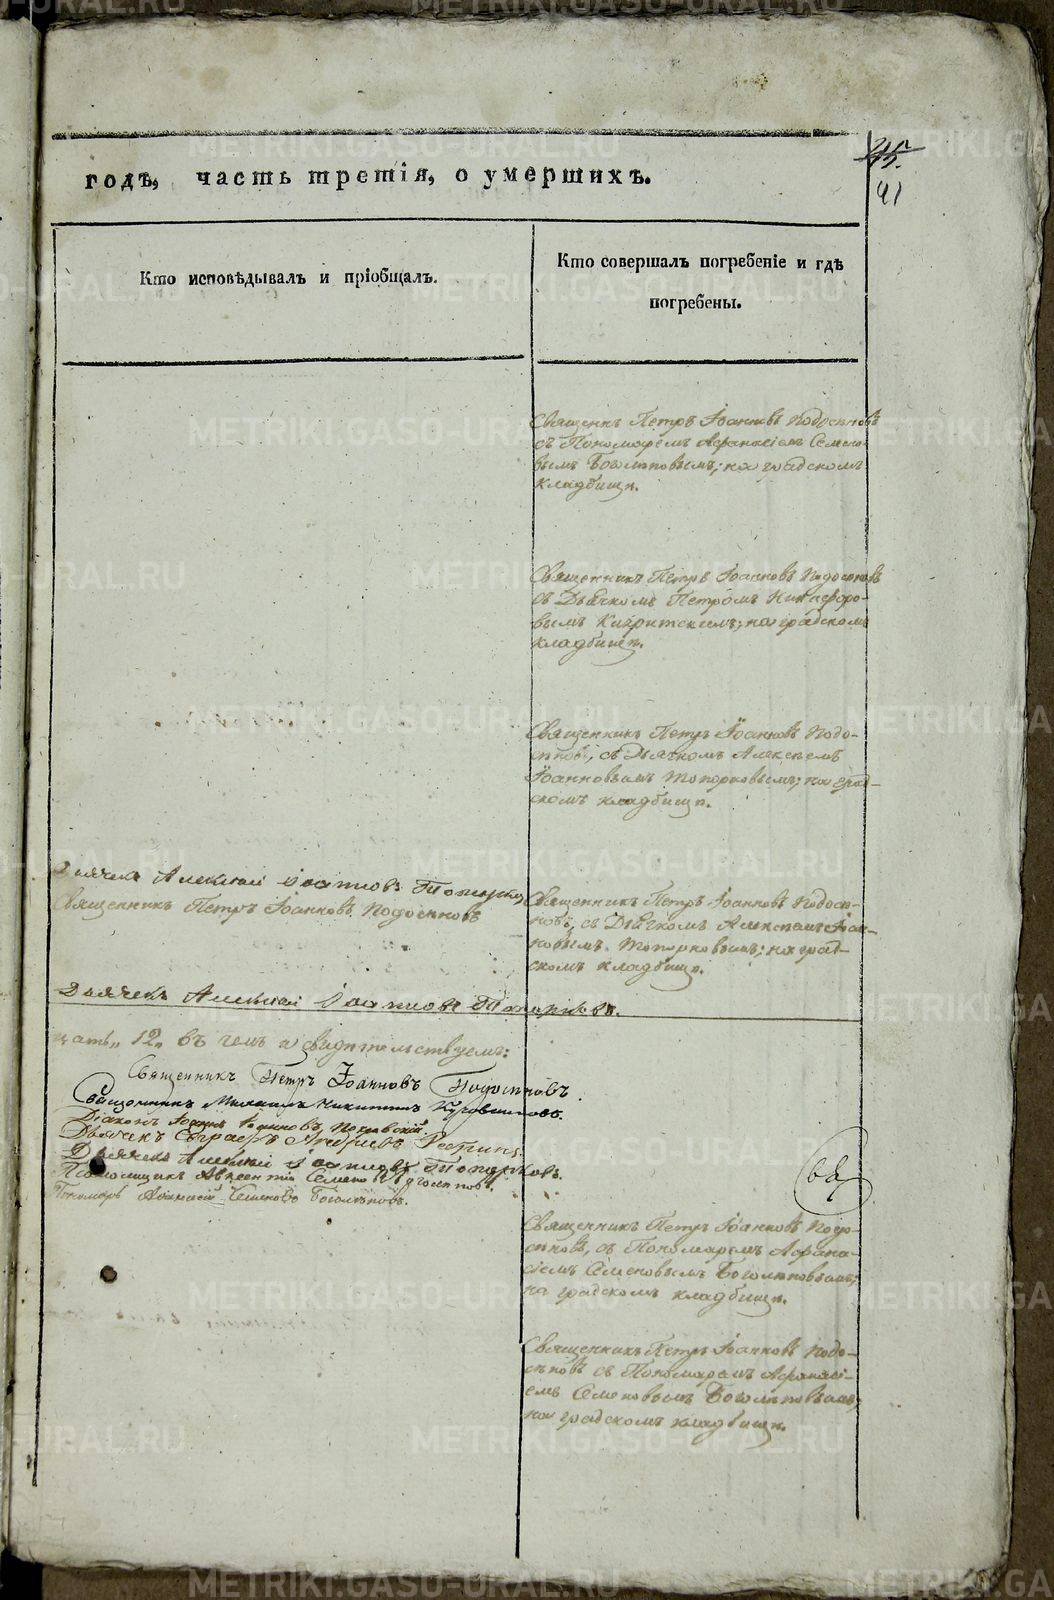 годъ, часть третія, о умершихъ.
41
Кто исповѣдывалъ и пріобщалъ.
Кто совершалъ погребеніе и гдѣ
погребены.
Священн. Петръ Іоанновъ
съ Пономаремъ Афанасіемъ Семено-
вымъ Боголѣповымъ; на градскомъ
кладбищѣ.
Священникъ Петръ Іоанновъ
съ Дьячкомъ Петромъ Никифоро-
вымъ на градскомъ
кладбищѣ.
Священникъ Петръ Іоанновъ Подо-
сѣновъ, съ Дьячкомъ Алексѣемъ
Іоанновымъ Топорковымъ; на град-
скомъ кладбищѣ.
Дьячекъ Алексѣй Іоанновъ
Священникъ Петръ Іоанновъ Подосѣновъ
Священникъ Петръ Іоанновъ Подосѣ-
новъ, съ Дьячкомъ Алексѣемъ Іоан-
новымъ Топорковымъ; на град-
скомъ кладбищѣ.
Дьячекъ Алексѣй Іоанновъ Топорковъ.
12 въ чемъ и свидѣтельствуемъ:
Священникъ Петръ Іоанновъ Подосѣновъ
Священникъ Михаилъ Никитинъ
Діаконъ Іоаннъ
Дьячекъ
Дьячекъ Алексѣй Іоанновъ Топорковъ.
Семеновъ Боголѣповъ.
Пономарь Афанасій Семеновъ Боголѣповъ.
Священникъ Петръ Іоанновъ Подо-
сѣновъ, съ Пономаремъ Афана-
сіемъ Семеновымъ Боголѣповымъ;
на градскомъ кладбищѣ.
Священникъ Петръ Іоанновъ Подо-
сѣновъ съ Пономаремъ Афанасі-
емъ Семеновымъ Боголѣповымъ;
на градскомъ кладбищѣ.
METRIKI.GASO-URAL.RU